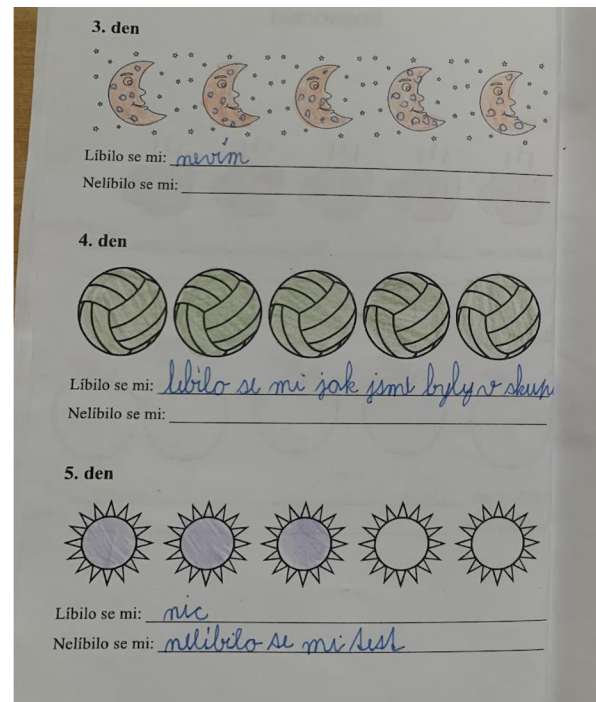 3. den
Líbilo se mi: nevím
Nelíbilo se mi:
4. den
Líbilo se mi: libilo se mi jak jsme byly v skup
Nelíbilo se mi:
5. den
Líbilo se mi: nic
Nelíbilo se mi: nelíbilo se mi test